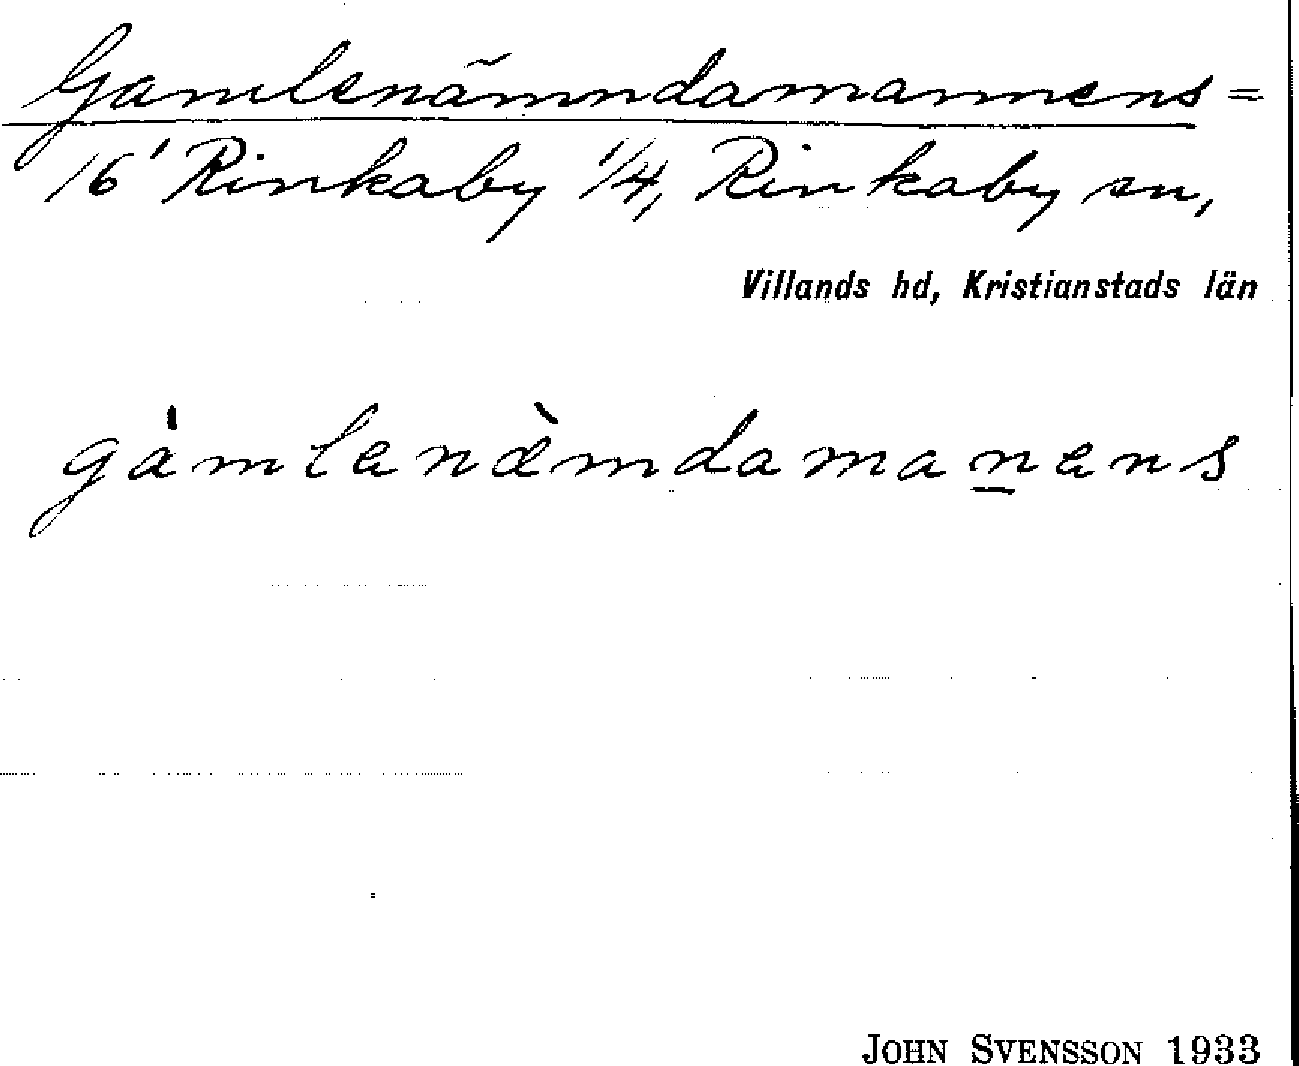 Gamlenämndamannens =
16¹ Rinkaby 1/4, Rinkaby sn,
Villands hd, Kristianstads län
gàmlenæ̀mdamaṉens
JOHN SVENSSON 1933